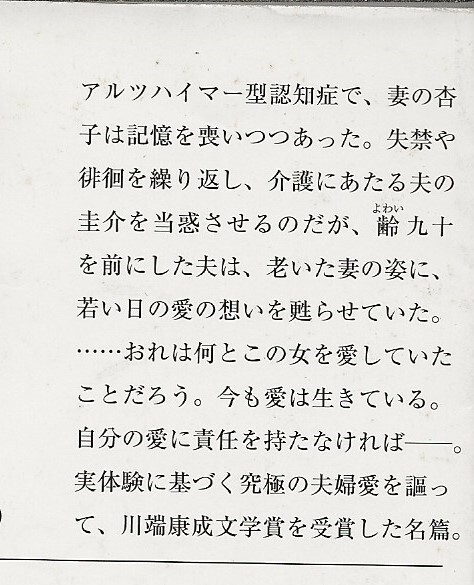 アルツハイマー型認知症で、妻の杏
子は記憶を喪いつつあった。失禁や
徘徊を繰り返し、介護にあたる夫の
よわい
圭介を当惑させるのだが、齢九十
を前にした夫は、老いた妻の姿に、
若い日の愛の想いを甦らせていた。
……おれは何とこの女を愛していた
ことだろう。今も愛は生きている。
自分の愛に責任を持たなければ――。
実体験に基づく究極の夫婦愛を謳っ
て、川端康成文学賞を受賞した名篇。